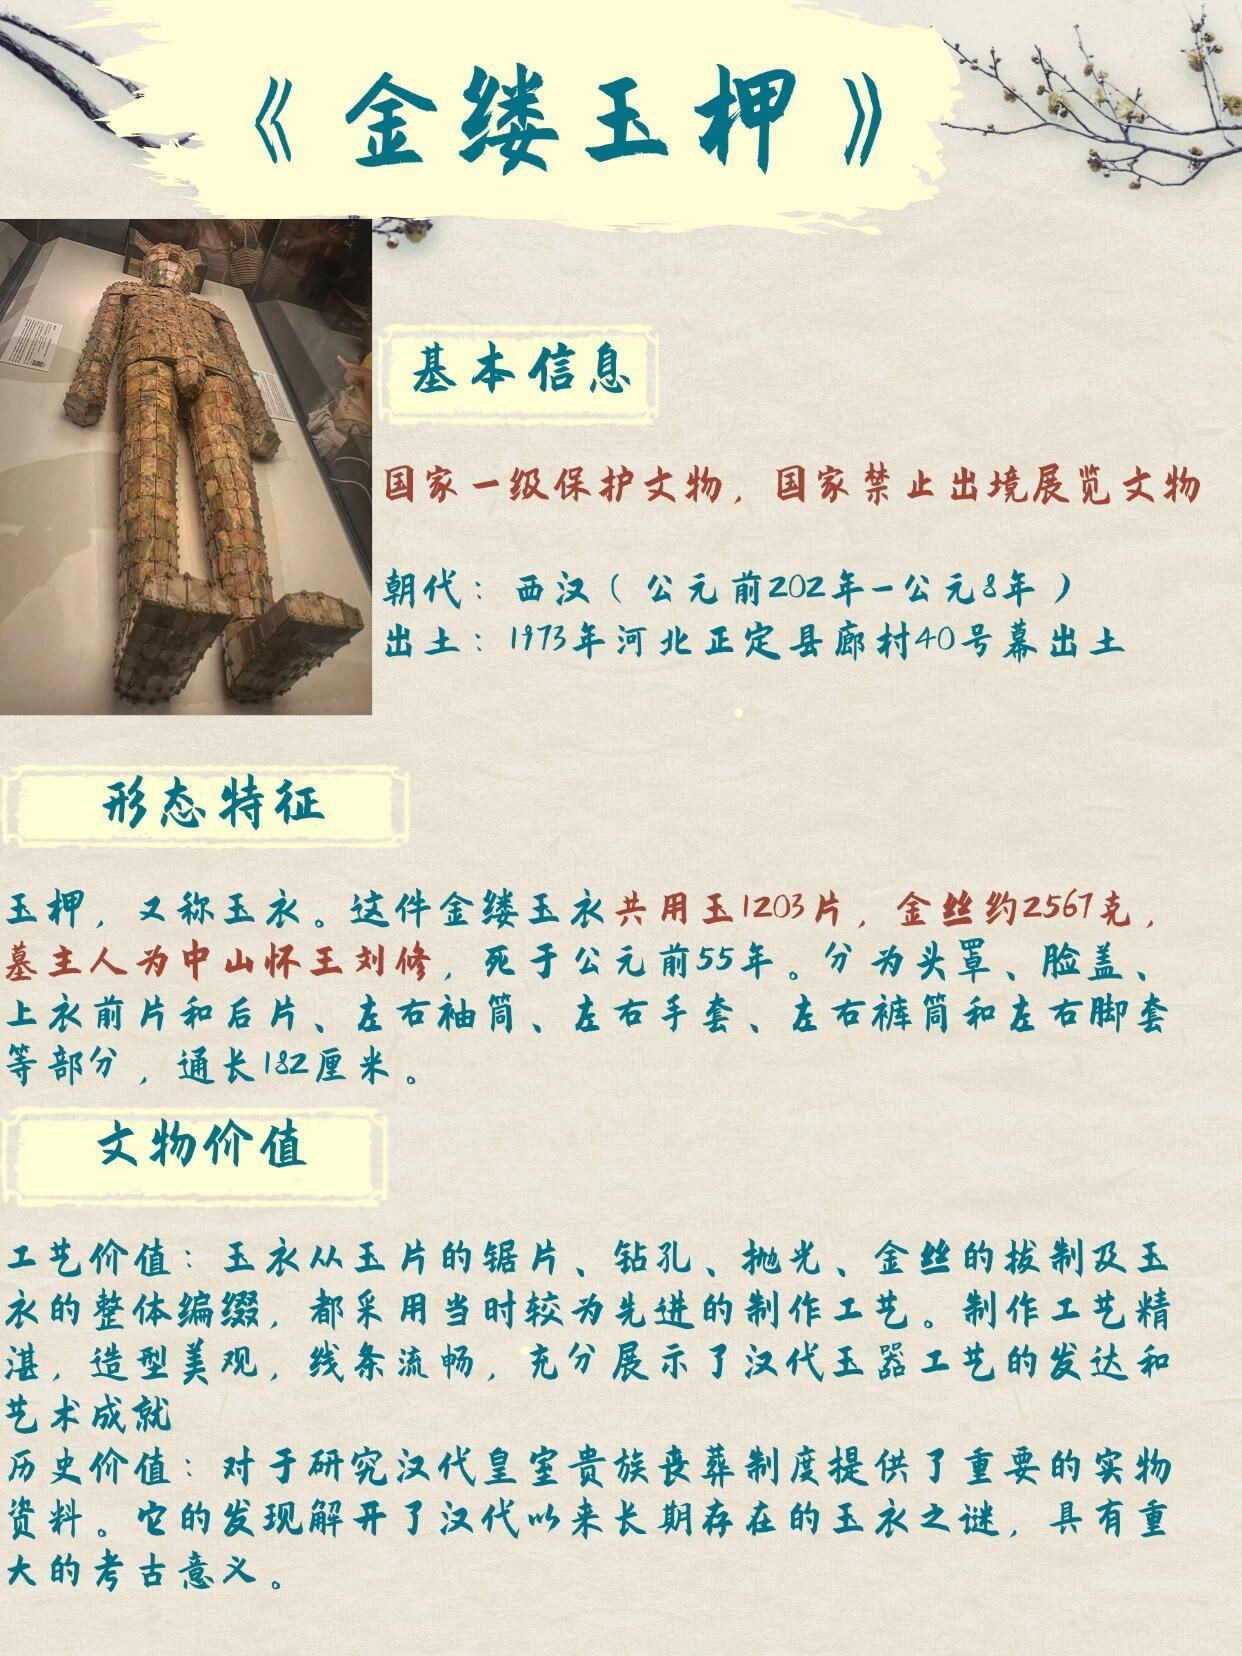 《金缕玉柙》
基本信息
国家一级保护文物，国家禁止出境展览文物
朝代：西汉（公元前202年—公元8年）
出土：1973年河北正定县廊村40号幕出土
形态特征
玉柙，又称玉衣。这件金缕玉衣共用玉1203片，金丝约2567克，
墓主人为中山怀王刘修，死于公元前55年。分为头罩、脸盖、
上衣前片和后片、左右袖筒、左右手套、左右裤筒和左右脚套
等部分，通长182厘米。
文物价值
工艺价值：玉衣从玉片的锯片、钻孔、抛光、金丝的拔制及玉
衣的整体编缀，都采用当时较为先进的制作工艺。制作工艺精
湛，造型美观，线条流畅，充分展示了汉代玉器工艺的发达和
艺术成就
历史价值：对于研究汉代皇室贵族丧葬制度提供了重要的实物
资料。它的发现解开了汉代以来长期存在的玉衣之谜，具有重
大的考古意义。